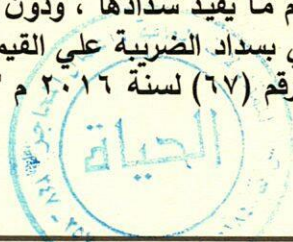 م ما يفيد سدادها ، ودون
ي بسداد الضريبة علي القيم
رقم (٦٧) لسنة ٢٠١٦ م "
الحياة